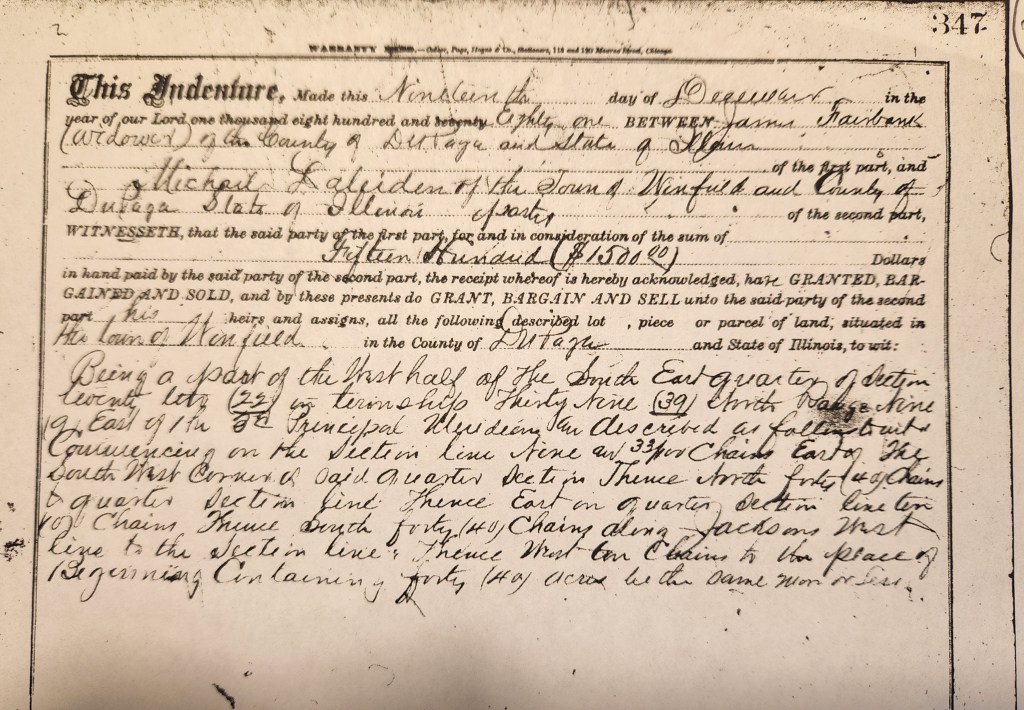 2
347
WARRANTY DEED.—Culver, Page, Hoyne & Co., Stationers, 118 and 120 Monroe Street, Chicago.
This Indenture, Made this Nineteenth day of December in the
year of our Lord one thousand eight hundred and seventy Eighty one BETWEEN James Fairbank
(Widower) of the County of DuPage and State of Illinois
of the first part, and
Michael Laleiden of the Town of Winfield and County of
DuPage State of Illinois party
of the second part,
WITNESSETH, that the said party of the first part, for and in consideration of the sum of
Fifteen Hundred ($1500 00) Dollars
in hand paid by the said party of the second part, the receipt whereof is hereby acknowledged, have GRANTED, BAR-
GAINED AND SOLD, and by these presents do GRANT, BARGAIN AND SELL unto the said party of the second
part his heirs and assigns, all the following described lot , piece or parcel of land, situated in
the town of Winfield in the County of DuPage and State of Illinois, to wit:
Being a part of the West half of the South East quarter of Section
twenty two (22) in township Thirty Nine (39) North Range Nine
(9) East of the 3rd Principal Meridian described as follows to wit
Commencing on the Section line Nine and 33/100 Chains East of The
South West Corner of said quarter Section Thence North forty (40) Chains
to quarter Section line Thence East on quarter Section line ten
(10) Chains Thence South forty (40) Chains along Jacksons West
line to the Section line, Thence West ten Chains to the place of
Beginning Containing forty (40) acres be the same more or less.